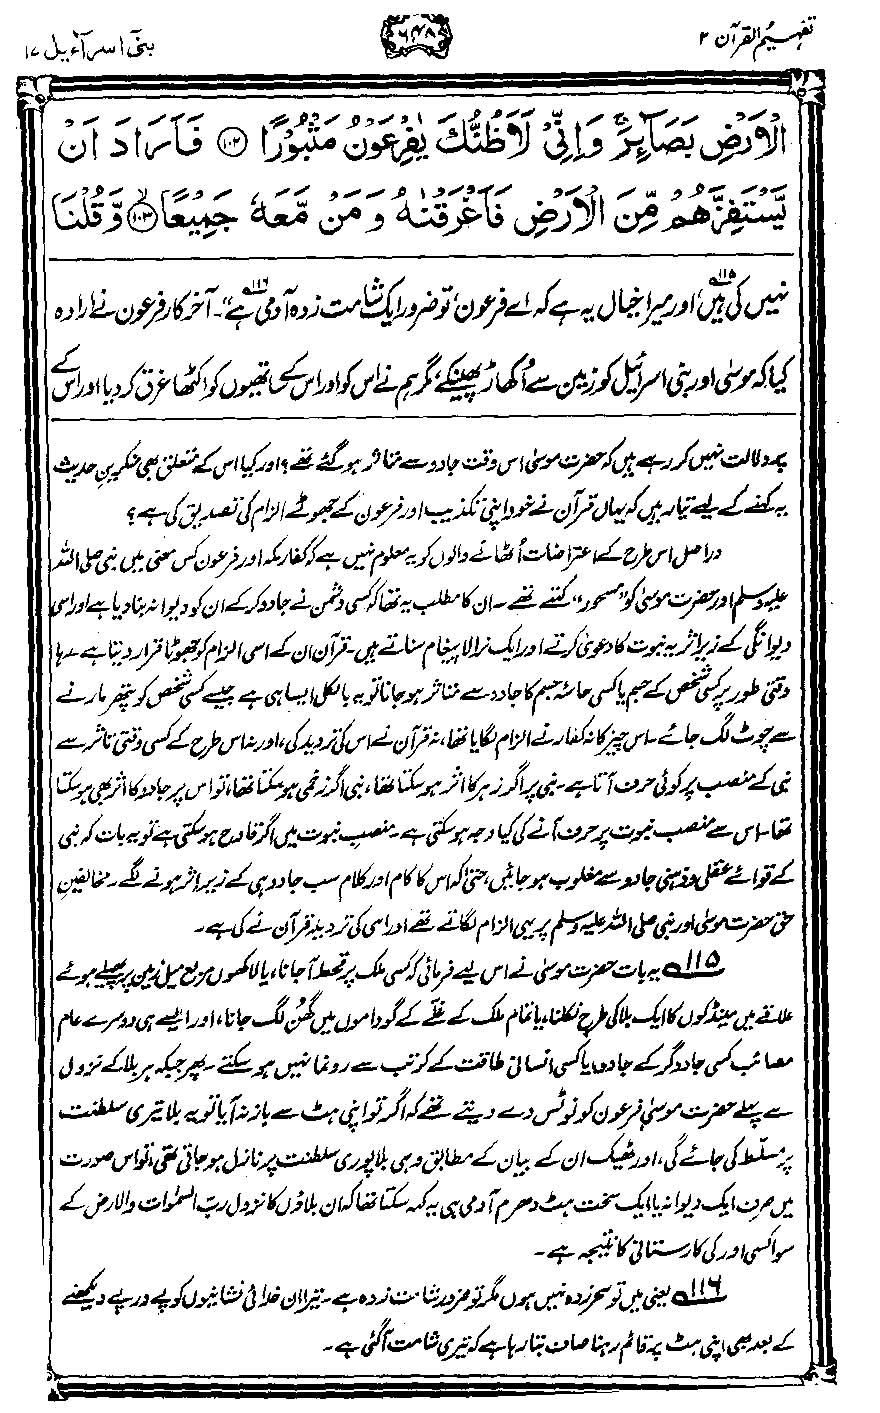 تفہیم القرآن ۲
۶۴۸
بنیٓ اسرآءیل ۱۷
الْاَرْضِ بَصَآئِرَ ۚ وَاِنِّیْ لَاَظُنُّكَ یٰفِرْعَوْنُ مَثْبُوْرًا ﴿۱۰۲﴾ فَاَرَادَ اَنْ
یَّسْتَفِزَّهُمْ مِّنَ الْاَرْضِ فَاَغْرَقْنٰهُ وَ مَنْ مَّعَهٗ جَمِیْعًا ﴿۱۰۳﴾ۙ وَّ قُلْنَا
نہیں کی ہیں،۱۱۵ اور میرا خیال یہ ہے کہ اے فرعون، تو ضرور ایک شامت زدہ آدمی ہے۱۱۶“۔ آخر کار فرعون نے ارادہ
کیا کہ موسیٰ اور بنی اسرائیل کو زمین سے اُکھاڑ پھینکے، مگر ہم نے اس کو اور اس کے ساتھیوں کو اکٹھا غرق کر دیا اور اس کے
پر دلالت نہیں کر رہے ہیں کہ حضرت موسیٰ اس وقت جادو سے متاثر ہو گئے تھے؟ اور کیا اس کے متعلق بھی منکرینِ حدیث
یہ کہنے کے لیے تیار ہیں کہ یہاں قرآن نے خود اپنی تکذیب اور فرعون کے جھوٹے الزام کی تصدیق کی ہے؟
دراصل اس طرح کے اعتراضات اُٹھانے والوں کو یہ معلوم نہیں ہے کہ کفار مکہ اور فرعون کس معنی میں نبی صلی اللہ
علیہ وسلم اور حضرت موسیٰ کو ”مسحور“ کہتے تھے۔ ان کا مطلب یہ تھا کہ کسی دشمن نے جادو کر کے ان کو دیوانہ بنا دیا ہے اور اسی
دیوانگی کے زیر اثر یہ نبوت کا دعویٰ کرتے اور ایک نرالا پیغام سناتے ہیں۔ قرآن ان کے اسی الزام کو جھوٹا قرار دیتا ہے۔ رہا
وقتی طور پر کسی شخص کے جسم یا کسی حاسۂ جسم کا جادو سے متاثر ہو جانا تو یہ بالکل ایسا ہی ہے جیسے کسی شخص کو پتھر مارنے
سے چوٹ لگ جائے۔ اس چیز کا نہ کفار نے الزام لگایا تھا، نہ قرآن نے اس کی تردید کی، اور نہ اس طرح کے کسی وقتی تاثر سے
نبی کے منصب پر کوئی حرف آتا ہے۔ نبی پر اگر زہر کا اثر ہو سکتا تھا، نبی اگر زخمی ہو سکتا تھا، تو اس پر جادو کا اثر بھی ہو سکتا
تھا۔ اس سے منصب نبوت پر حرف آنے کی کیا وجہ ہو سکتی ہے۔ منصب نبوت میں اگر قادح ہو سکتی ہے تو یہ بات کہ نبی
کے قوائے عقلی و ذہنی جادو سے مغلوب ہو جائیں، حتیٰ کہ اس کا کام اور کلام سب جادو ہی کے زیر اثر ہونے لگے۔ مخالفینِ
حق حضرت موسیٰ اور نبی صلی اللہ علیہ وسلم پر یہی الزام لگاتے تھے اور اسی کی تردید قرآن نے کی ہے۔
۱۱۵ یہ بات حضرت موسیٰ نے اس لیے فرمائی کہ کسی ملک پر قحط آ جانا، یا لاکھوں مربع میل زمین پر پھیلے ہوئے
علاقے میں مینڈکوں کا ایک بلا کی طرح نکلنا، یا تمام ملک کے غلّے کے گوداموں میں گھُن لگ جانا، اور ایسے ہی دوسرے عام
مصائب کسی جادوگر کے جادو، یا کسی انسانی طاقت کے کرتب سے رونما نہیں ہو سکتے۔ پھر جبکہ ہر بلا کے نزول
سے پہلے حضرت موسیٰ فرعون کو نوٹس دے دیتے تھے کہ اگر تو اپنی ہٹ سے باز نہ آیا تو یہ بلا تیری سلطنت
پر مسلّط کی جائے گی، اور ٹھیک ان کے بیان کے مطابق وہی بلا پوری سلطنت پر نازل ہو جاتی تھی، تو اس صورت
میں صرف ایک دیوانہ یا ایک سخت ہٹ دھرم آدمی ہی یہ کہہ سکتا تھا کہ ان بلاؤں کا نزول ربّ السمٰوات والارض کے
سوا کسی اور کی کارستانی کا نتیجہ ہے۔
۱۱۶ یعنی میں تو سحر زدہ نہیں ہوں مگر تو ضرور شامت زدہ ہے۔ تیرا ان خدائی نشانیوں کو پے در پے دیکھنے
کے بعد بھی اپنی ہٹ پر قائم رہنا صاف بتا رہا ہے کہ تیری شامت آ گئی ہے۔